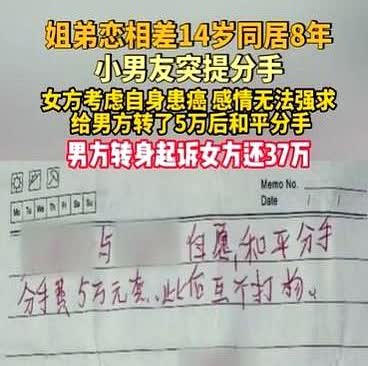 姐弟恋相差14岁同居8年
小男友突提分手
女方考虑自身患癌 感情无法强求
给男方转了5万后和平分手
男方转身起诉女方还37万
Memo No.
Mo Tu We Th Fr Sa Su
Date / /
与 自愿,和平分手
分手费5万元整、此后互不打扰、